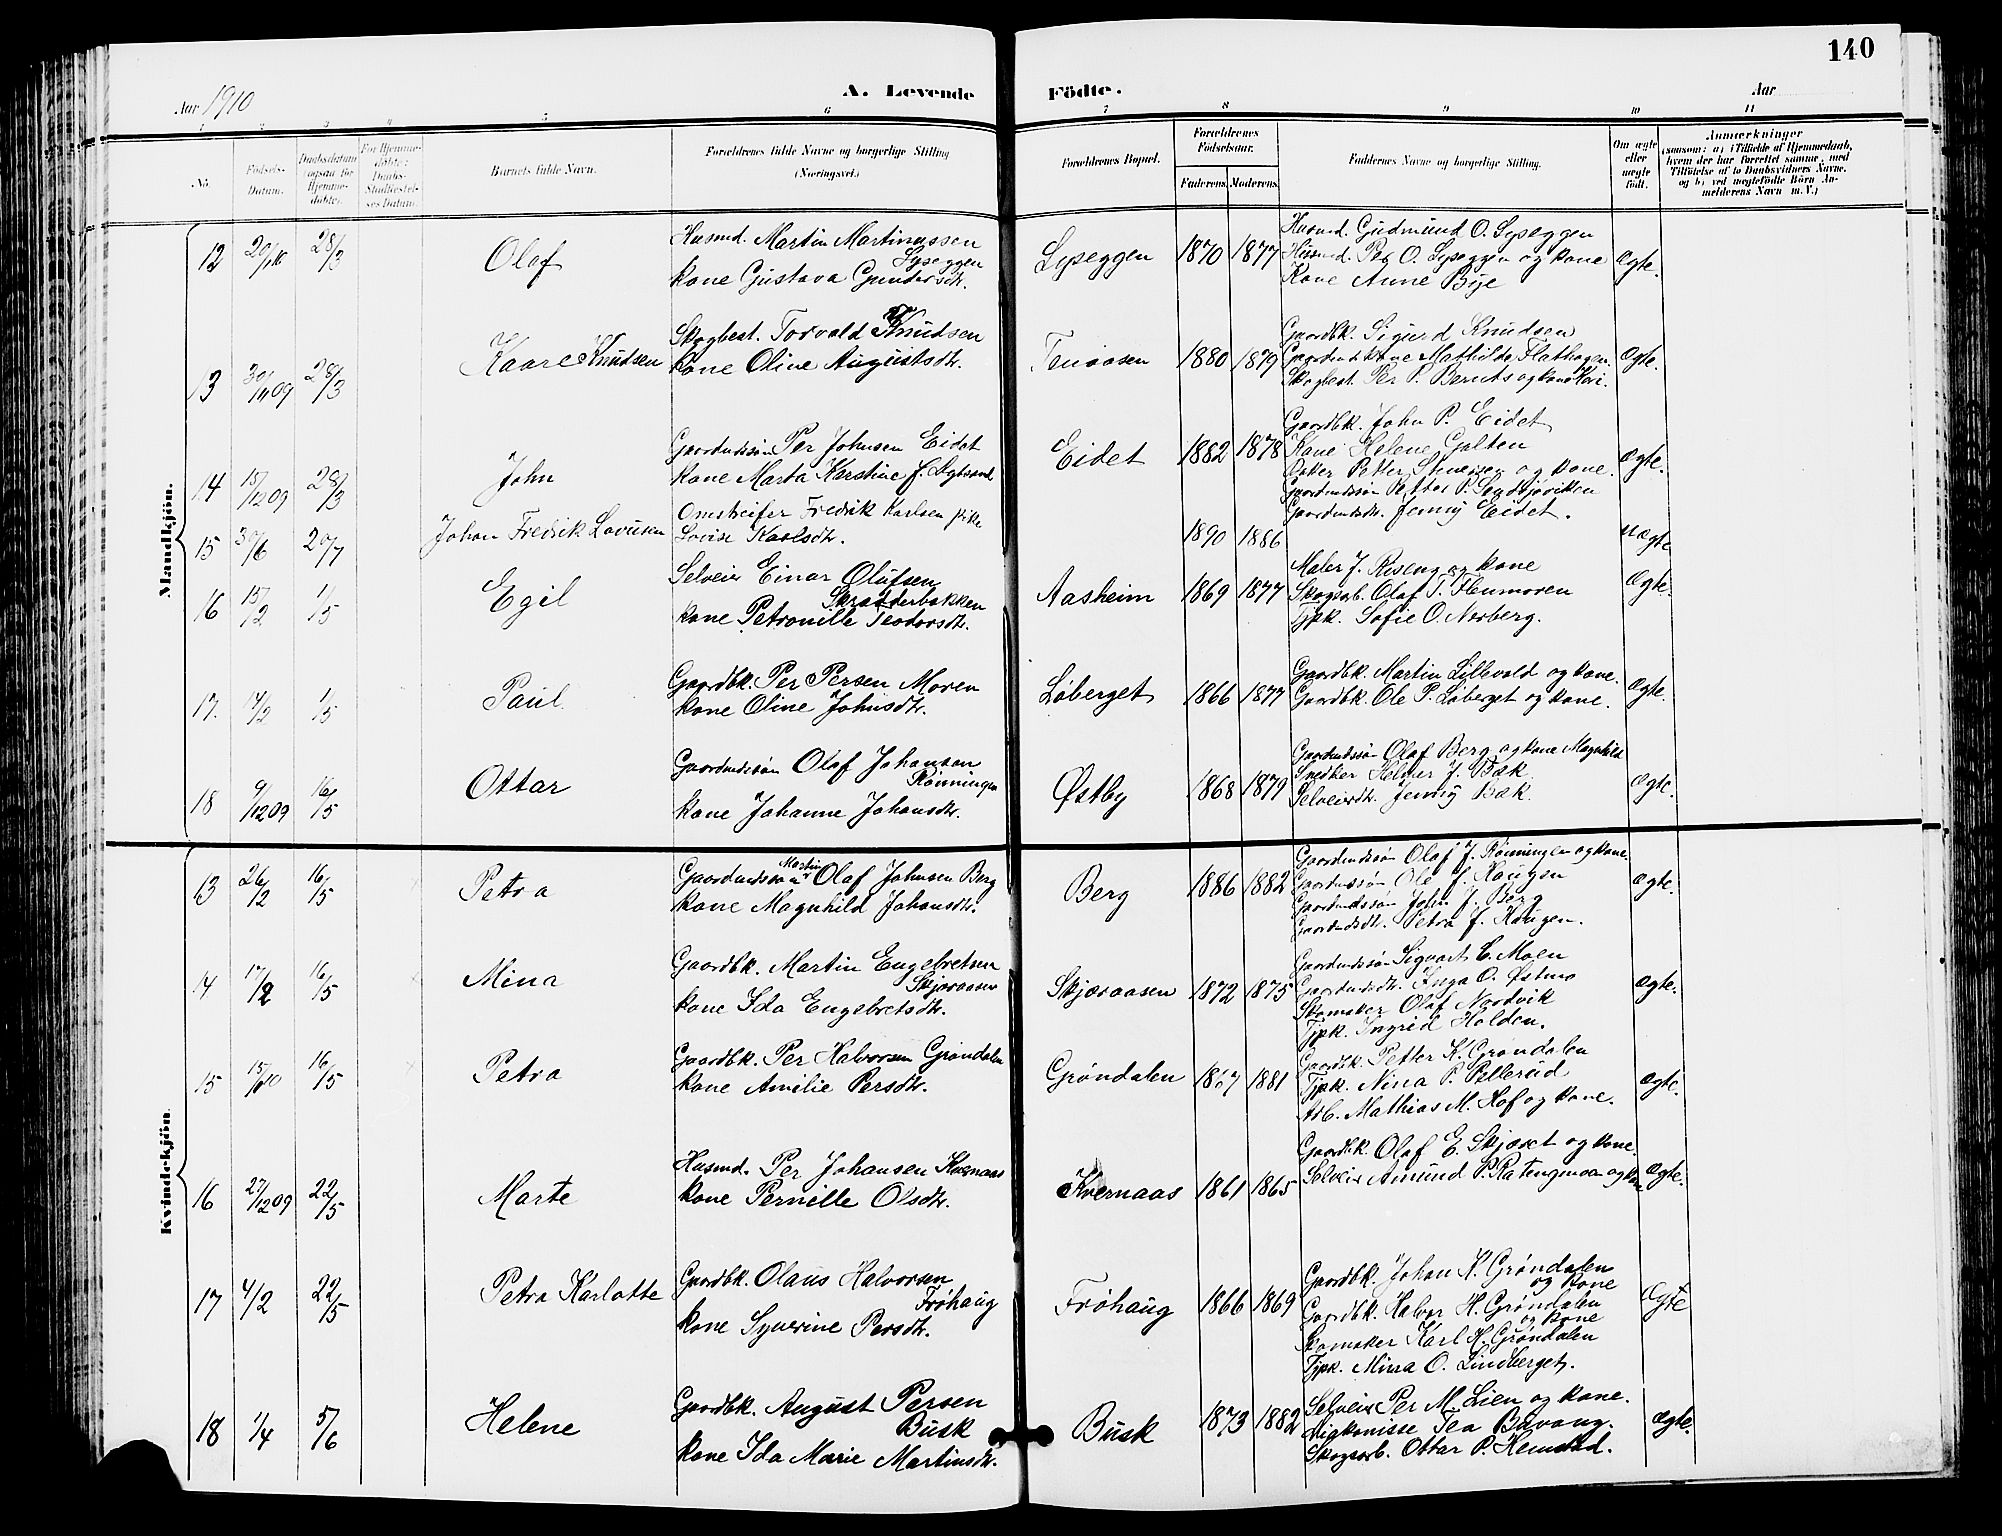 140
Aar 1910
A. Levende Födte.
Aar
1 2 3 4 5 6 7 8 9 10 11
No.
Födsels-Datum.
Daabsdatum (ogsaa for Hjemme-döbte).
For Hjemme-döbte: Daabs-Stadfæstel-ses Datum.
Barnets fulde Navn.
Forældrenes fulde Navne og borgerlige Stilling (Næringsvei.)
Forældrenes Bopæl.
Forældrenes Födselsaar.
Faderens. Moderens.
Faddernes Navne og borgerlige Stilling.
Om ægte eller uægte födt.
Anmærkninger
(saasom: a) i Tilfælde af Hjemmedaab, hvem der har forrettet samme, med Tilföielse af to Daabsvidners Navne, og b) ved uægtefödte Börn An-melderens Navn m. V.)
Mandkjön.
12 28/3 Olaf
Husmd. Martin Martinussen
Lyseggen
kone Gustava Gundersdtr.
Lyseggen 1870 1877
Husmd. Gudmund O. Lyseggen
Husmd. Per O. Lyseggen og kone
Kone Anne Bye
Ægte.
13 30/11 09 28/3 Kaare Knudsen
Skogbest. Torvald Knudsen
kone Oline Augustsdtr.
1880 1879
Gaardbk. Sigurd Knudsen
Kone Mathilde Flathagen
Skogbest. Per P. Bernts og kone
Ægte.
14 15/12 09 28/3 John
Gaardmdssøn Per Johnsen Eidet
kone Marta Karstine J.
Eidet 1882 1878
Gaardbk. John P. Eidet
Kone Helene Galten
Petter Stenersen og kone.
Gaardmdssøn Petter P.
Gaardmdsdtr. Jenny Eidet.
Ægte.
15 30/6 20/7 Johan Fredrik Lovisen
Omstreifer Fredrik Karlsen pike
Lovise Karlsdtr.
1890 1886
uægte
16 15/2 1/5 Egil
Selveier Einar Olufsen
Skrædderbakken
kone Petronille Teodorsdtr.
Aasheim 1869 1877
Maler J. Roseng og kone
Skogsarb. Olaf T. Flenmoren
Tjpk. Sofie O. Norberg.
Ægte.
17. 17/2 1/5 Paul
Gaardbk. Per Persen Moren
kone Oline Johnsdtr.
Løberget 1866 1877
Gaardbk. Martin Lillevold og kone.
Gaardbk. Ole P. Løberget og kone.
Ægte.
18 9/12 09 16/5 Ottar
Gaardmdssøn Olaf Johansen
Rønningen
kone Johanne Johansdtr.
Østby 1868 1879
Gaardmdssøn Olaf Berg og kone Magnhild
Snedker Helmer J. Bæk
Selveierdtr. Jenny Bæk.
Ægte.
Kvindekjön.
13 26/2 16/5 Petra
Gaardmdssøn Martin Olaf Johnsen Berg
kone Magnhild Johansdtr.
Berg 1886 1882
Gaardmdssøn Olaf J. Rønningen og kone.
Gaardmdssøn Ole J. Haugen
Gaardmdssøn John J. Berg
Gaardmdsdtr. Petra J. Haugen.
Ægte.
14 17/2 16/5 Mina
Gaardbk. Martin Engebretsen
Skjæraasen
kone Ida Engebretsdtr.
Skjæraasen 1872 1875
Gaardmdssøn Sigvart E. Moen
Gaardmdsdtr. Inga O. Østmo
Skomaker Olaf Nordvik
Tjpk. Ingrid Holden.
Ægte.
15 16/5 Petra
Gaardbk. Per Halvorsen Grøndalen
kone Amilie Persdtr.
Grøndalen 1881
Gaardbk. Petter K. Grøndalen
Tjpk. Nina P. Pellerud
Arb. Mathias M. Hof og kone.
Ægte.
16 27/12 09 22/5 Marte
Husmd. Per Johansen Kvernaas
kone Pernille Olsdtr.
Kvernaas 1861 1865
Gaardbk. Olaf E. Skjæret og kone.
Selveier Amund P. Ratengmoen og kone
Ægte.
17 4/2 22/5 Petra Karlotte
Gaardbk. Olaus Halvorsen
Frøhaug
kone Syverine Persdtr.
Frøhaug 1866 1869
Gaardbk. Johan K. Grøndalen
og kone
Gaardbk. Halvor H. Grøndalen
og kone
Skomaker Karl H. Grøndalen
Tjpk. Mina O. Lindberget.
Ægte
18 1/4 5/6 Helene
Gaardbk. August Persen
Busk
kone Ida Marie Martinsdtr.
Busk 1873 1882
Selveier Per M. Lien og kone.
Diakonisse Tea Bævang.
Skogsarb. Ottar P. Hemstad.
Ægte.